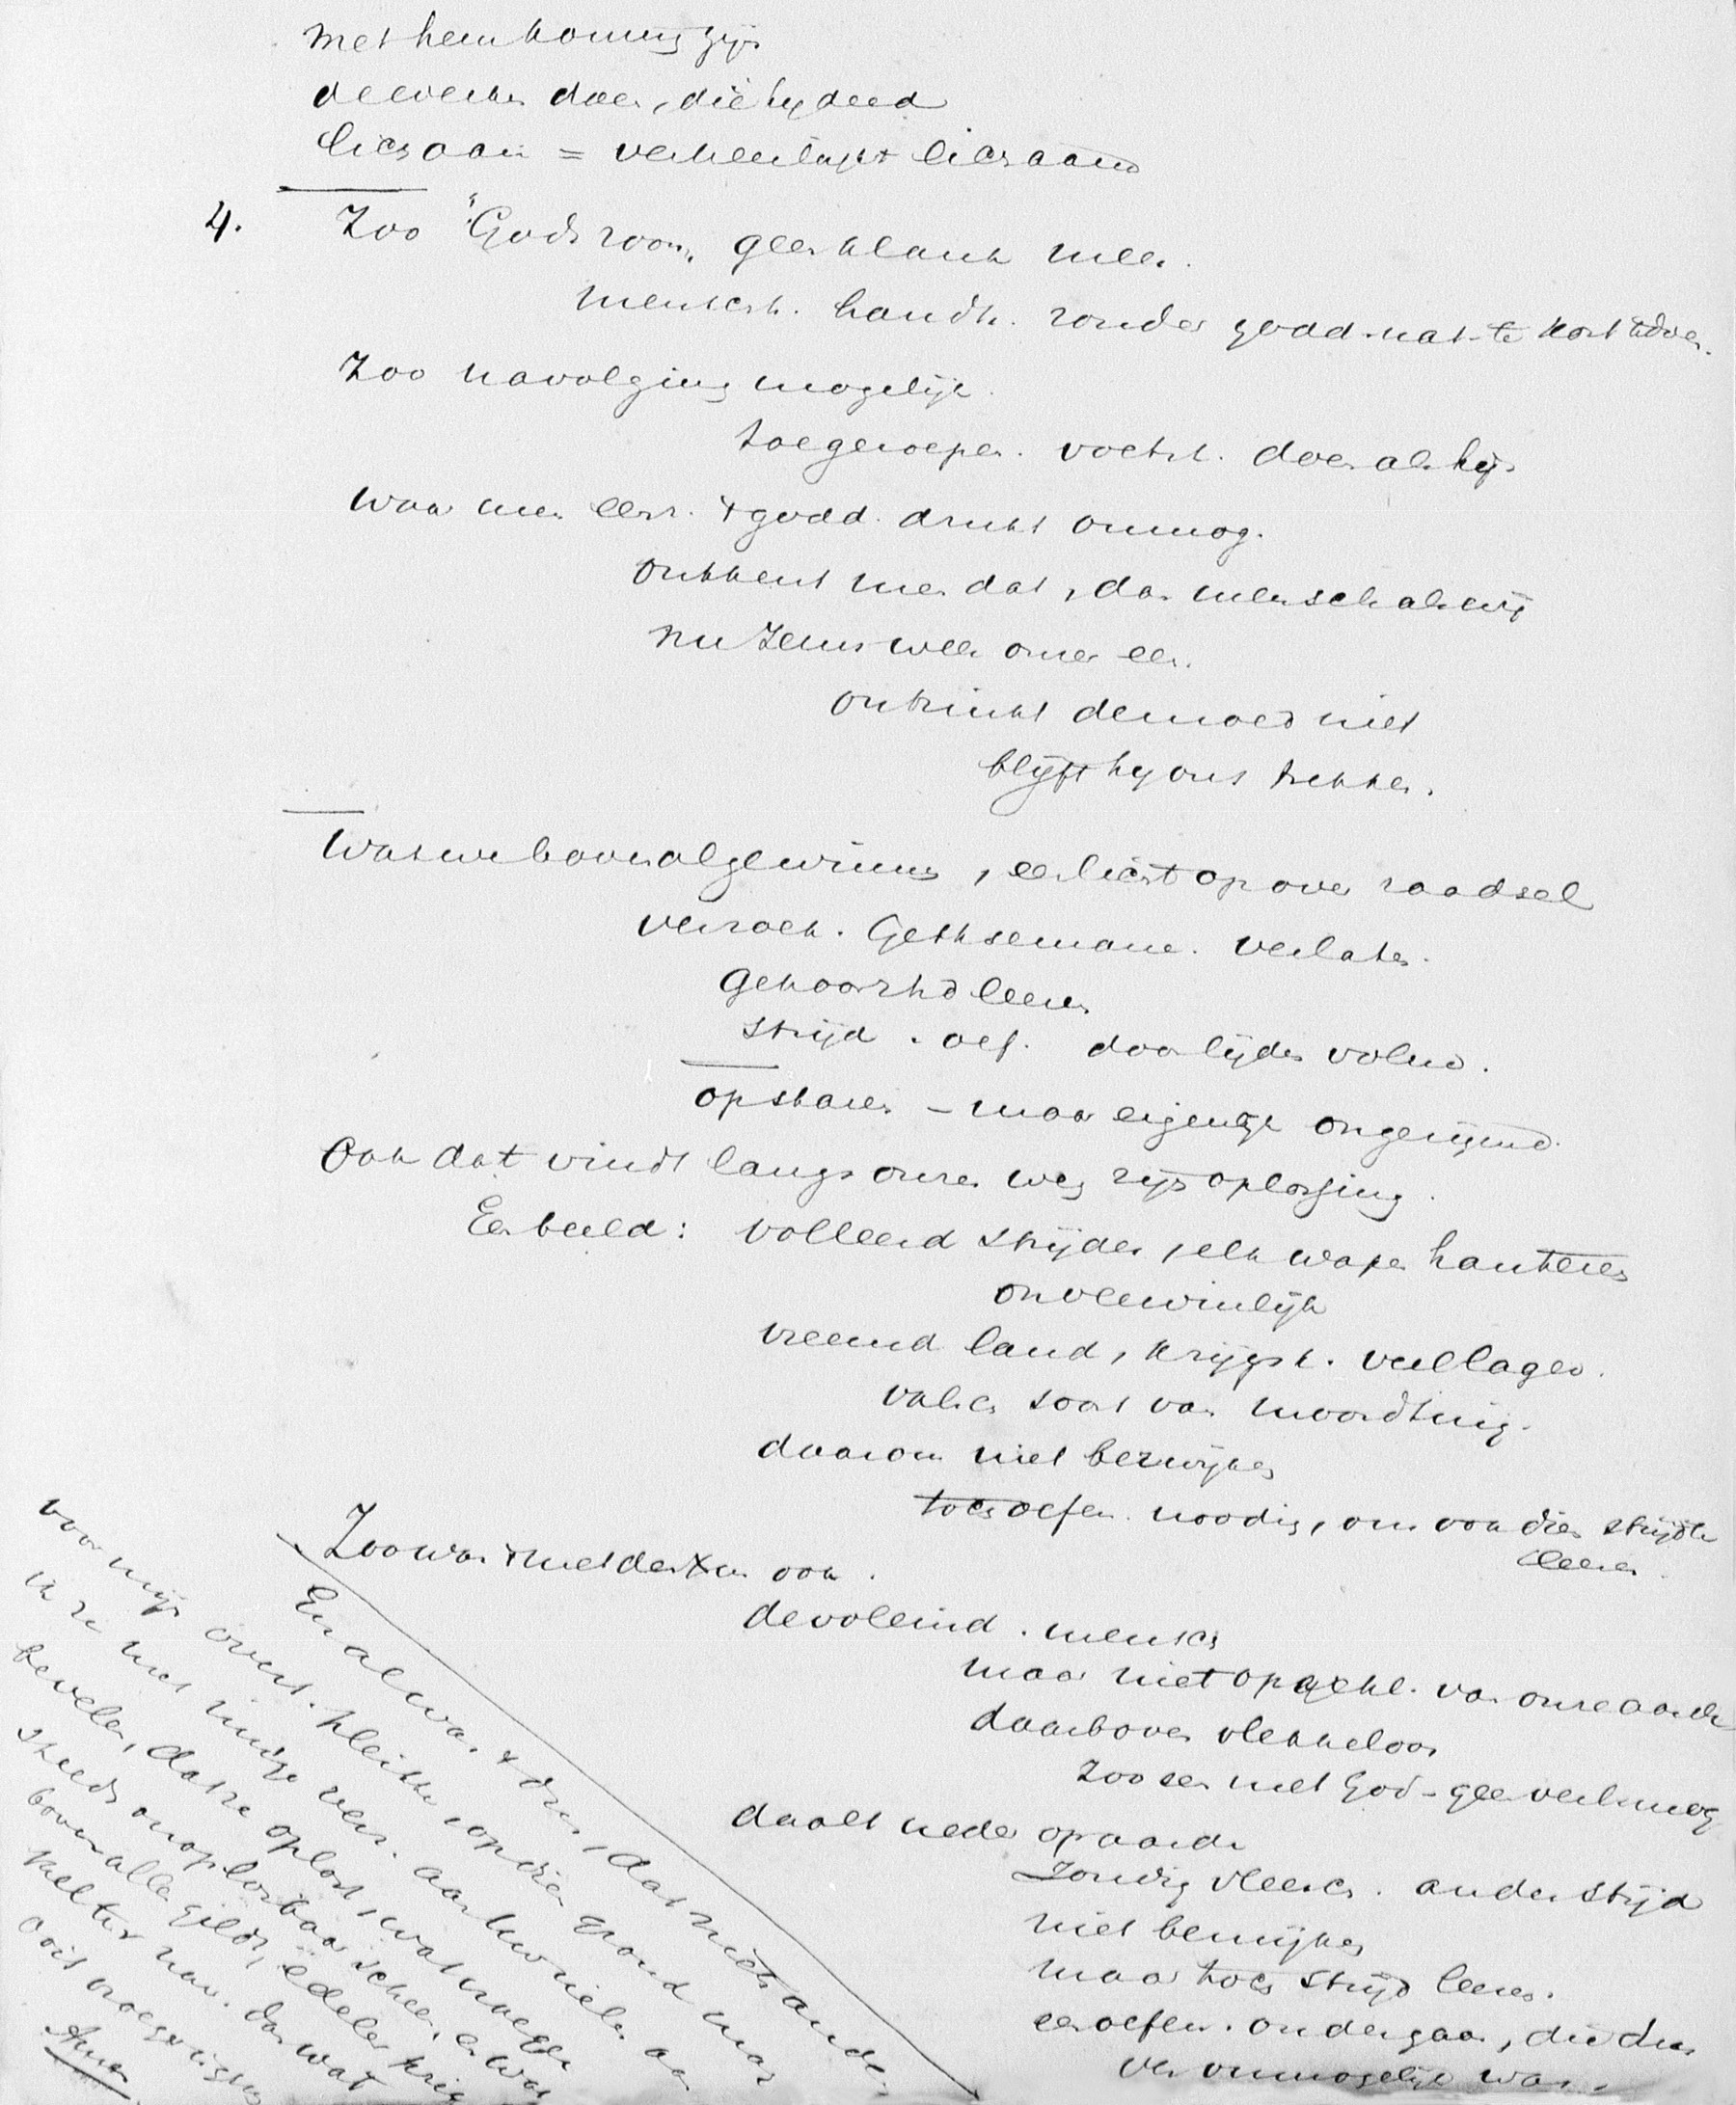 met hem koning zijn
de werken doen, die hy deed
lichaam = verheerlijkt lichaam
4. Zoo "Gods zoon" geen klank meer.
mensch. handh. zonder godd. nat. te kort te doen.
Zoo navolging mogelijk.
toegeroepen. voetst. doen als hij.
Waar men eenz. + godd. drukt onmog.
ontkent men dat, dan mensch als wij
nu Jezus weer onzer een.
ontzinkt de moed niet
blijft hy ons trekken.
Wat we bovenal gewinnen, een licht op over raadsel
verzoek. Gethsemane. verlaten.
gehoorzhd leeren
strijd. oef. door lijden volm.
opstaren – maar eigenlijk ongerijmd.
Ook dat vindt langs onzen weg zijn oplossing.
Een beeld: volleerd strijder, elk wapen hanteeren
onverwinlijk
vreemd land, krijgsk. veel lager.
valsch soort van moordtuig.
daarom niet bezwijken
toch oefen. noodig, om ook dien strijd te
leeren.
Zoo was 't met den Xus ook.
de voleind. mensch
maar niet op gehl. van onze aarde
daarboven vlekkeloos
zoo een met God – geen verlating
daalt neder op aarde
Zondig vleesch. ander strijd
niet bezwijken
maar toch strijd leeren.
een oefen. ondergaan, die dus
ver onmogelijk was.
En al was 't dus, dat niets anders
voor mijn overt. pleitte, op dien grond maar
ik ze met innige verz. aan
bevelen, dat ze oplost, wat vroeger
steeds onoplosbaar scheen, en wat
boven alles geldt, edeler
dan wat
ooit
Amen